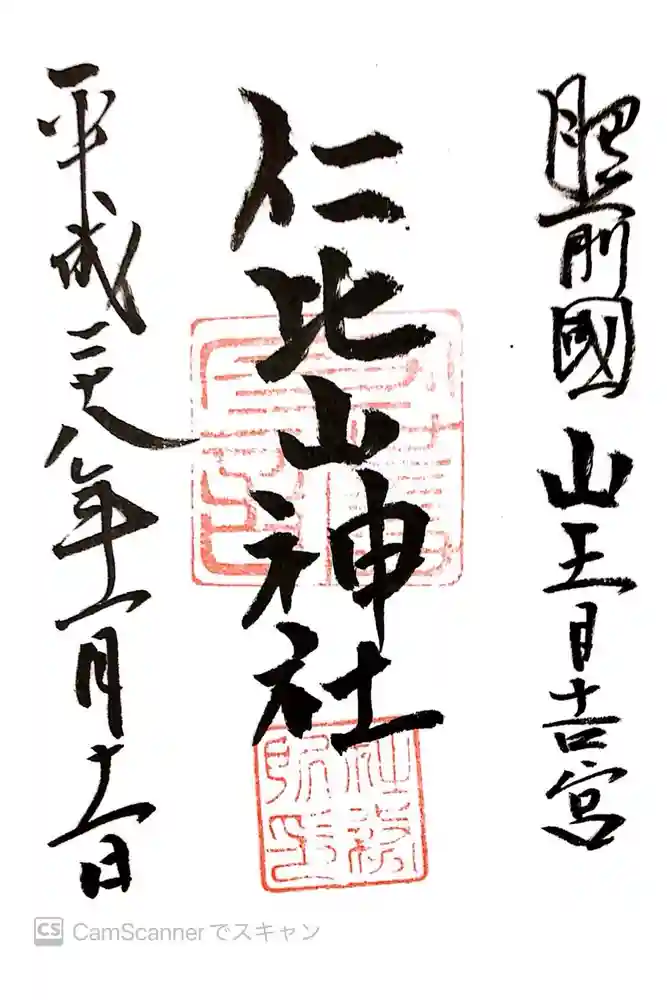 肥前國 山王日吉宮
仁比山神社
平成二十八年一月十一日
社務所印
CS CamScanner でスキャン